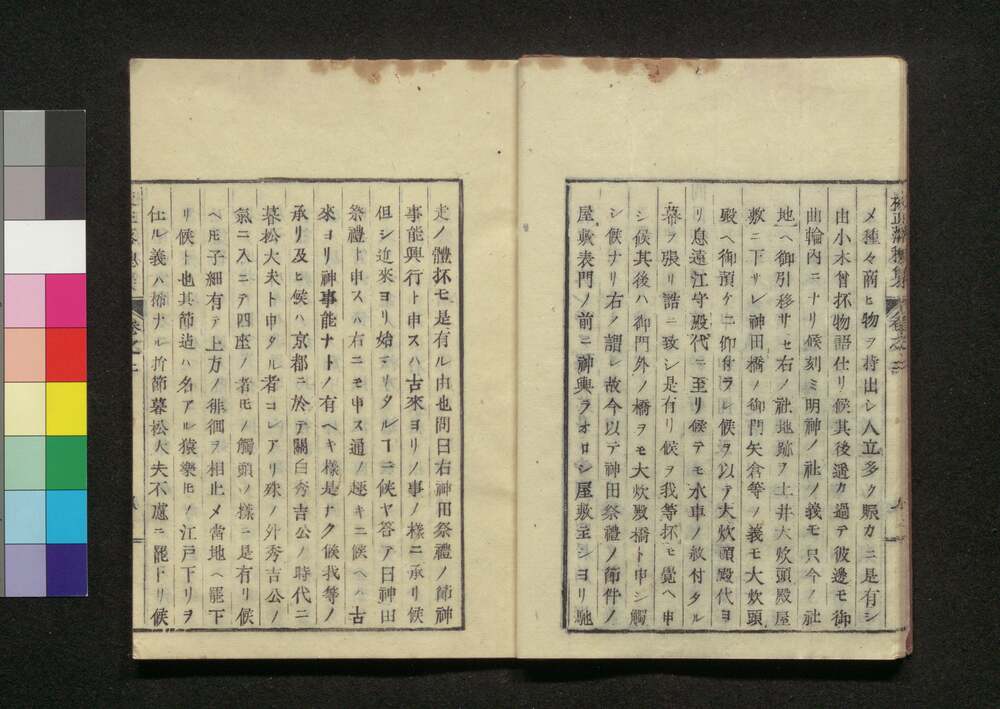 メ種々商ヒ物ヲ持出シ人立多ク賑カニ是有シ
由小木曾抔物語仕リ候其後遥カ過テ彼邊モ御
曲輪内ニナリ候刻ミ明神ノ社ノ義モ只今ノ社
地ヘ御引移サセ右ノ社地跡ヲ土井大炊頭殿屋
敷ニ下サレ神田橋ノ御門矢倉等ノ義モ大炊頭
殿ヘ御預ケニ仰付ラレ候ヲ以テ大炊頭殿代ヨ
リ息遠江守殿代ニ至リ候テモ水車ノ紋付タル
幕ヲ張リ詰ニ致シ是有リ候ヲ我等抔モ覺ヘ申
シ候其後ハ御門外ノ橋ヲモ大炊殿橋ト申シ觸
シ候ナリ右ノ謂レ故今以テ神田祭禮ノ節件ノ
屋敷表門ノ前ニ神輿ヲオロシ屋敷主シヨリ馳
走ノ體抔モ是有ル由也問曰右神田祭禮ノ節神
事能興行ト申スハ古來ヨリノ事ノ樣ニ承リ候
但シ近來ヨリ始マリタルーニ候ヤ答ア曰神田
祭禮ト申スハ右ニモ申ス通ノ趣キニ候ヘハ古
來ヨリ神事能ナトノ有ヘキ樣是ナク候我等ノ
承リ及ヒ候ハ京都ニ於テ關白秀吉公ノ時代ニ
暮松大夫ト申タル者コレアリ殊ノ外秀吉公ノ
氣ニ入ニテ四座ノ者モノ觸頭ノ樣ニ是有リ候
ヘモ子細有テ上方ノ徘徊ヲ相止メ當地ヘ罷下
リ候ト也其節迠ハ名アル猿樂モノ江戸下リヲ
仕ル義ハ稀ナル折節暮松大夫不慮ニ罷下リ候